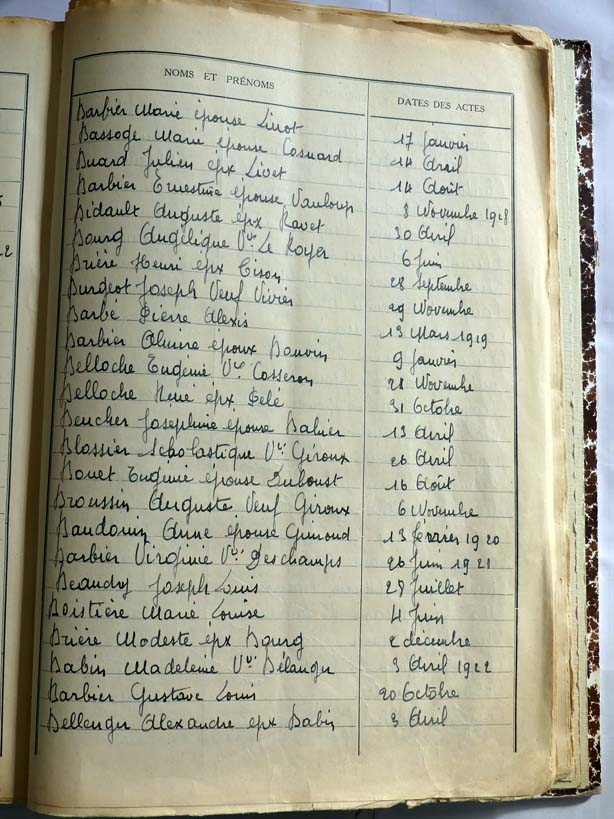 NOMS ET PRÉNOMS DATES DES ACTES
Barbier Marie épouse Livot 17 Janvier
Bassoge Marie épouse Cosnard 14 Avril
Buard Julien épx Livet 14 Août
Barbier Ernestine épouse Vauloup 8 Novembre 1918
Bidault Auguste épx Ravet 30 Avril
Bourg Angélique Vve Le Royer 6 Juin
Brière Henri épx Cison 28 Septembre
Burgeot Joseph Veuf Vivier 29 Novembre
Barbé Pierre Alexis 13 Mars 1919
Barbier époux Bouvin 9 Janvier
Belloche Eugénie Vve Cosseron 28 Novembre
Belloche René épx 31 Octobre
Beucher Joséphine épouse Babier 13 Avril
Blossier Scholastique Vve Giroux 26 Avril
Bouet Eugénie épouse Duboust 16 Août
Broussin Auguste Veuf Giroux 6 Novembre
Baudouin Anne épouse Gimoud 13 février 1920
Barbier Virginie Vve Deschamps 26 Juin 1921
Beaudry Joseph Louis 27 Juillet
Boistière Marie Louise 4 Juin
Brière Modeste épx Bourg 2 décembre
Babin Madeleine Vve Bélanger 3 Avril 1922
Barbier Gustave Louis 20 Octobre
Bellenger Alexandre épx Babin 3 Avril